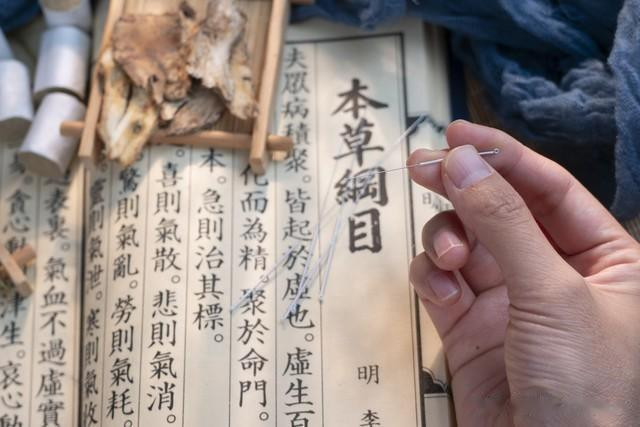 本草綱目
明 李
夫眾病積聚。皆起於虛也。虛生百
化而為精。聚於命門。
本。急則治其標。
喜則氣散。悲則氣消。
驚則氣亂。勞則氣耗。
則氣。寒則氣收
表裏。氣血不過虛實
貪心動 津生。哀心動